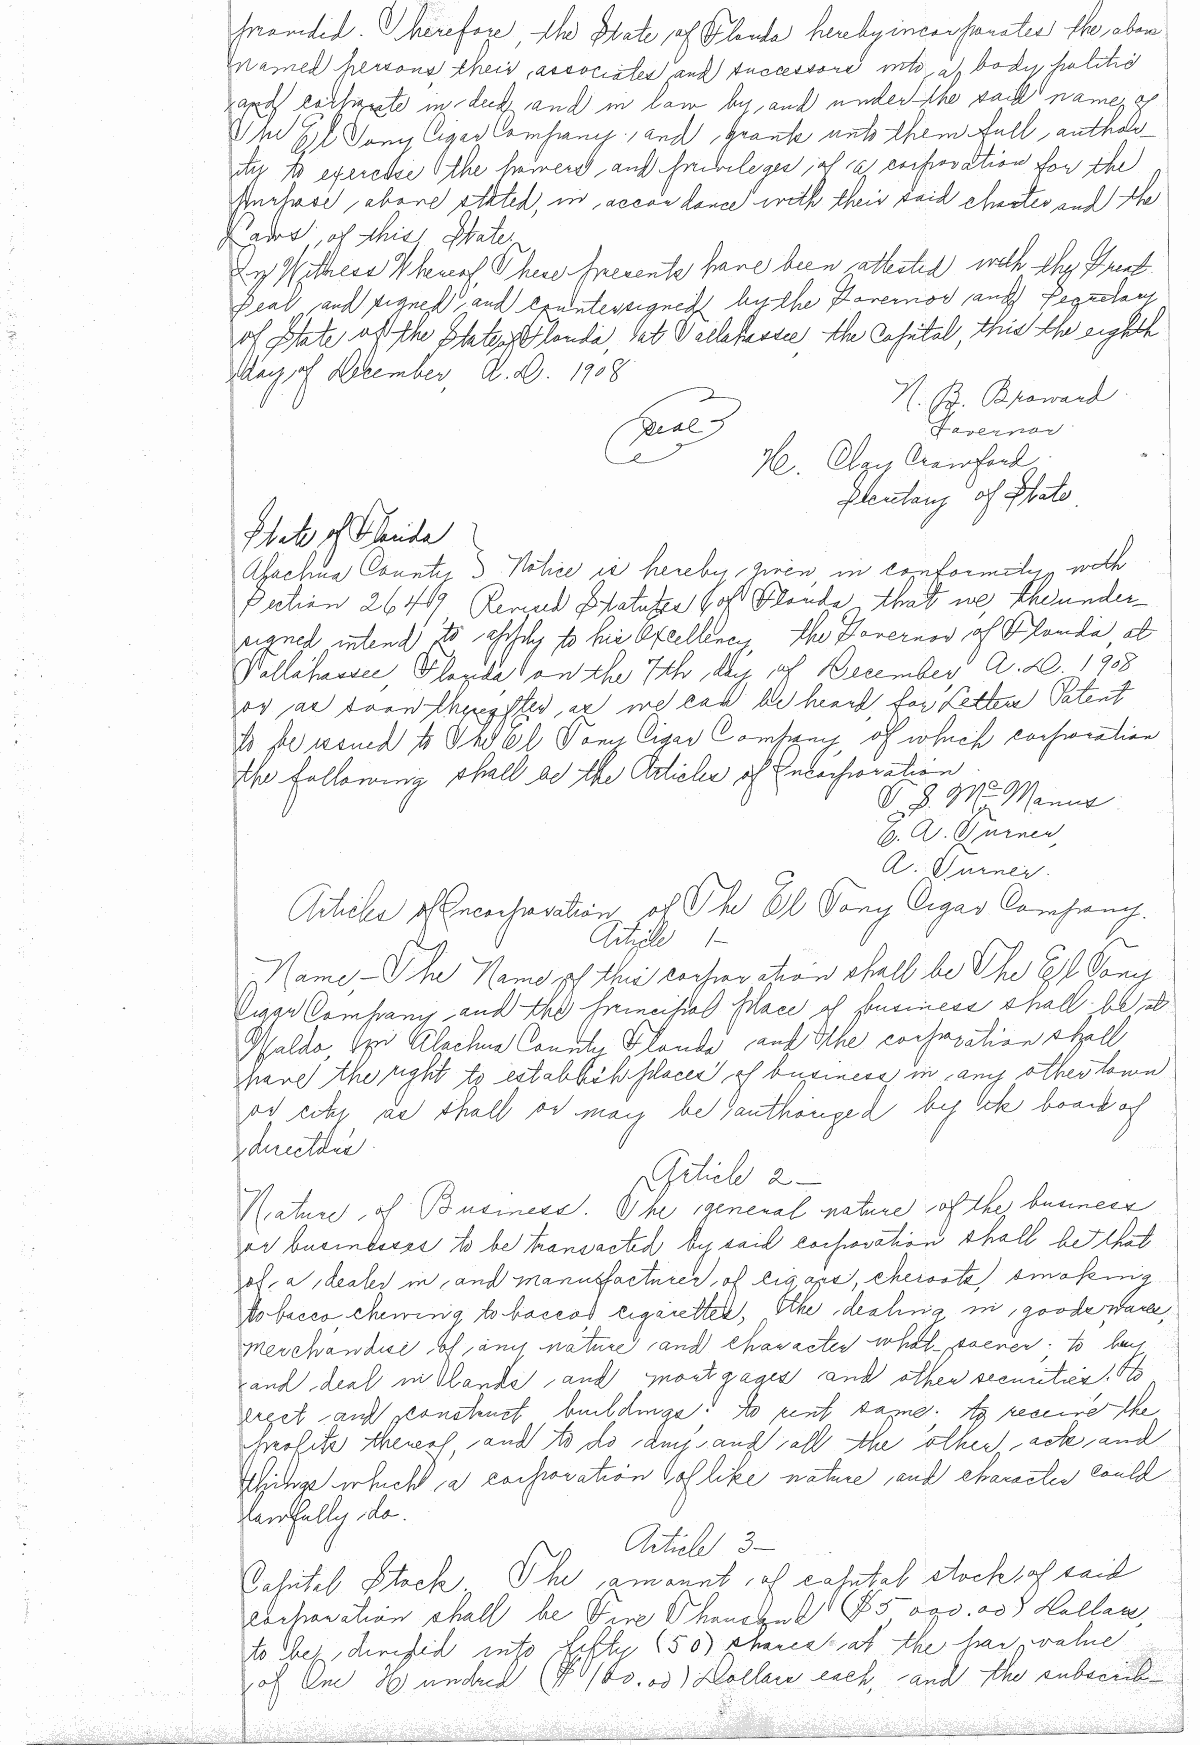 provided. Therefore, the State of Florida hereby incorporates the above
named persons their associates and successors into a body politic
and corporate in deed and in law by and under the said name of
The El Tony Cigar Company and grants unto them full author-
ity to exercise the powers and privileges of a corporation for the
purpose above stated, in accordance with their said charter and the
Laws of this State.
In Witness Whereof, These presents have been attested with the Great
Seal and signed and countersigned by the Governor and Secretary
of State of the State of Florida, at Tallahassee, the Capital, this the eighth
day of December, A.D. 1908
N. B. Broward
Governor
Seal
H. Clay Crawford
Secretary of State.
State of Florida }
Alachua County } Notice is hereby given in conformity with
Section 2649 Revised Statutes of Florida that we, the under-
signed intend to apply to his Excellency, the Governor of Florida, at
Tallahassee, Florida on the 7th day of December A.D. 1908
or as soon thereafter as we can be heard, for Letters Patent
to be issued to The El Tony Cigar Company, of which corporation
the following shall be the Articles of Incorporation
T. S. McManus
E. A. Turner,
A. Turner.
Articles of Incorporation of The El Tony Cigar Company.
Article 1-
Name - The Name of this corporation shall be The El Tony
Cigar Company and the principal place of business shall be at
Waldo, in Alachua County Florida and the corporation shall
have the right to establish places of business in any other town
or city as shall or may be authorized by the board of
directors.
Article 2-
Nature of Business. The general nature of the business
or businesses to be transacted by said corporation shall be that
of a dealer in and manufacturer of cigars, cheroots, smoking
tobacco, chewing tobacco, cigarettes, the dealing in goods, wares,
merchandise of any nature and character what-soever; to buy
and deal in lands and mortgages and other securities; to
erect and construct buildings; to rent same; to receive the
profits thereof, and to do any and all the other acts and
things which a corporation of like nature and character could
lawfully do.
Article 3-
Capital Stock. The amount of capital stock of said
corporation shall be Five Thousand ($5,000.00) Dollars,
to be divided into fifty (50) shares at the par value
of One Hundred ($100.00) Dollars each, and the subscrib-